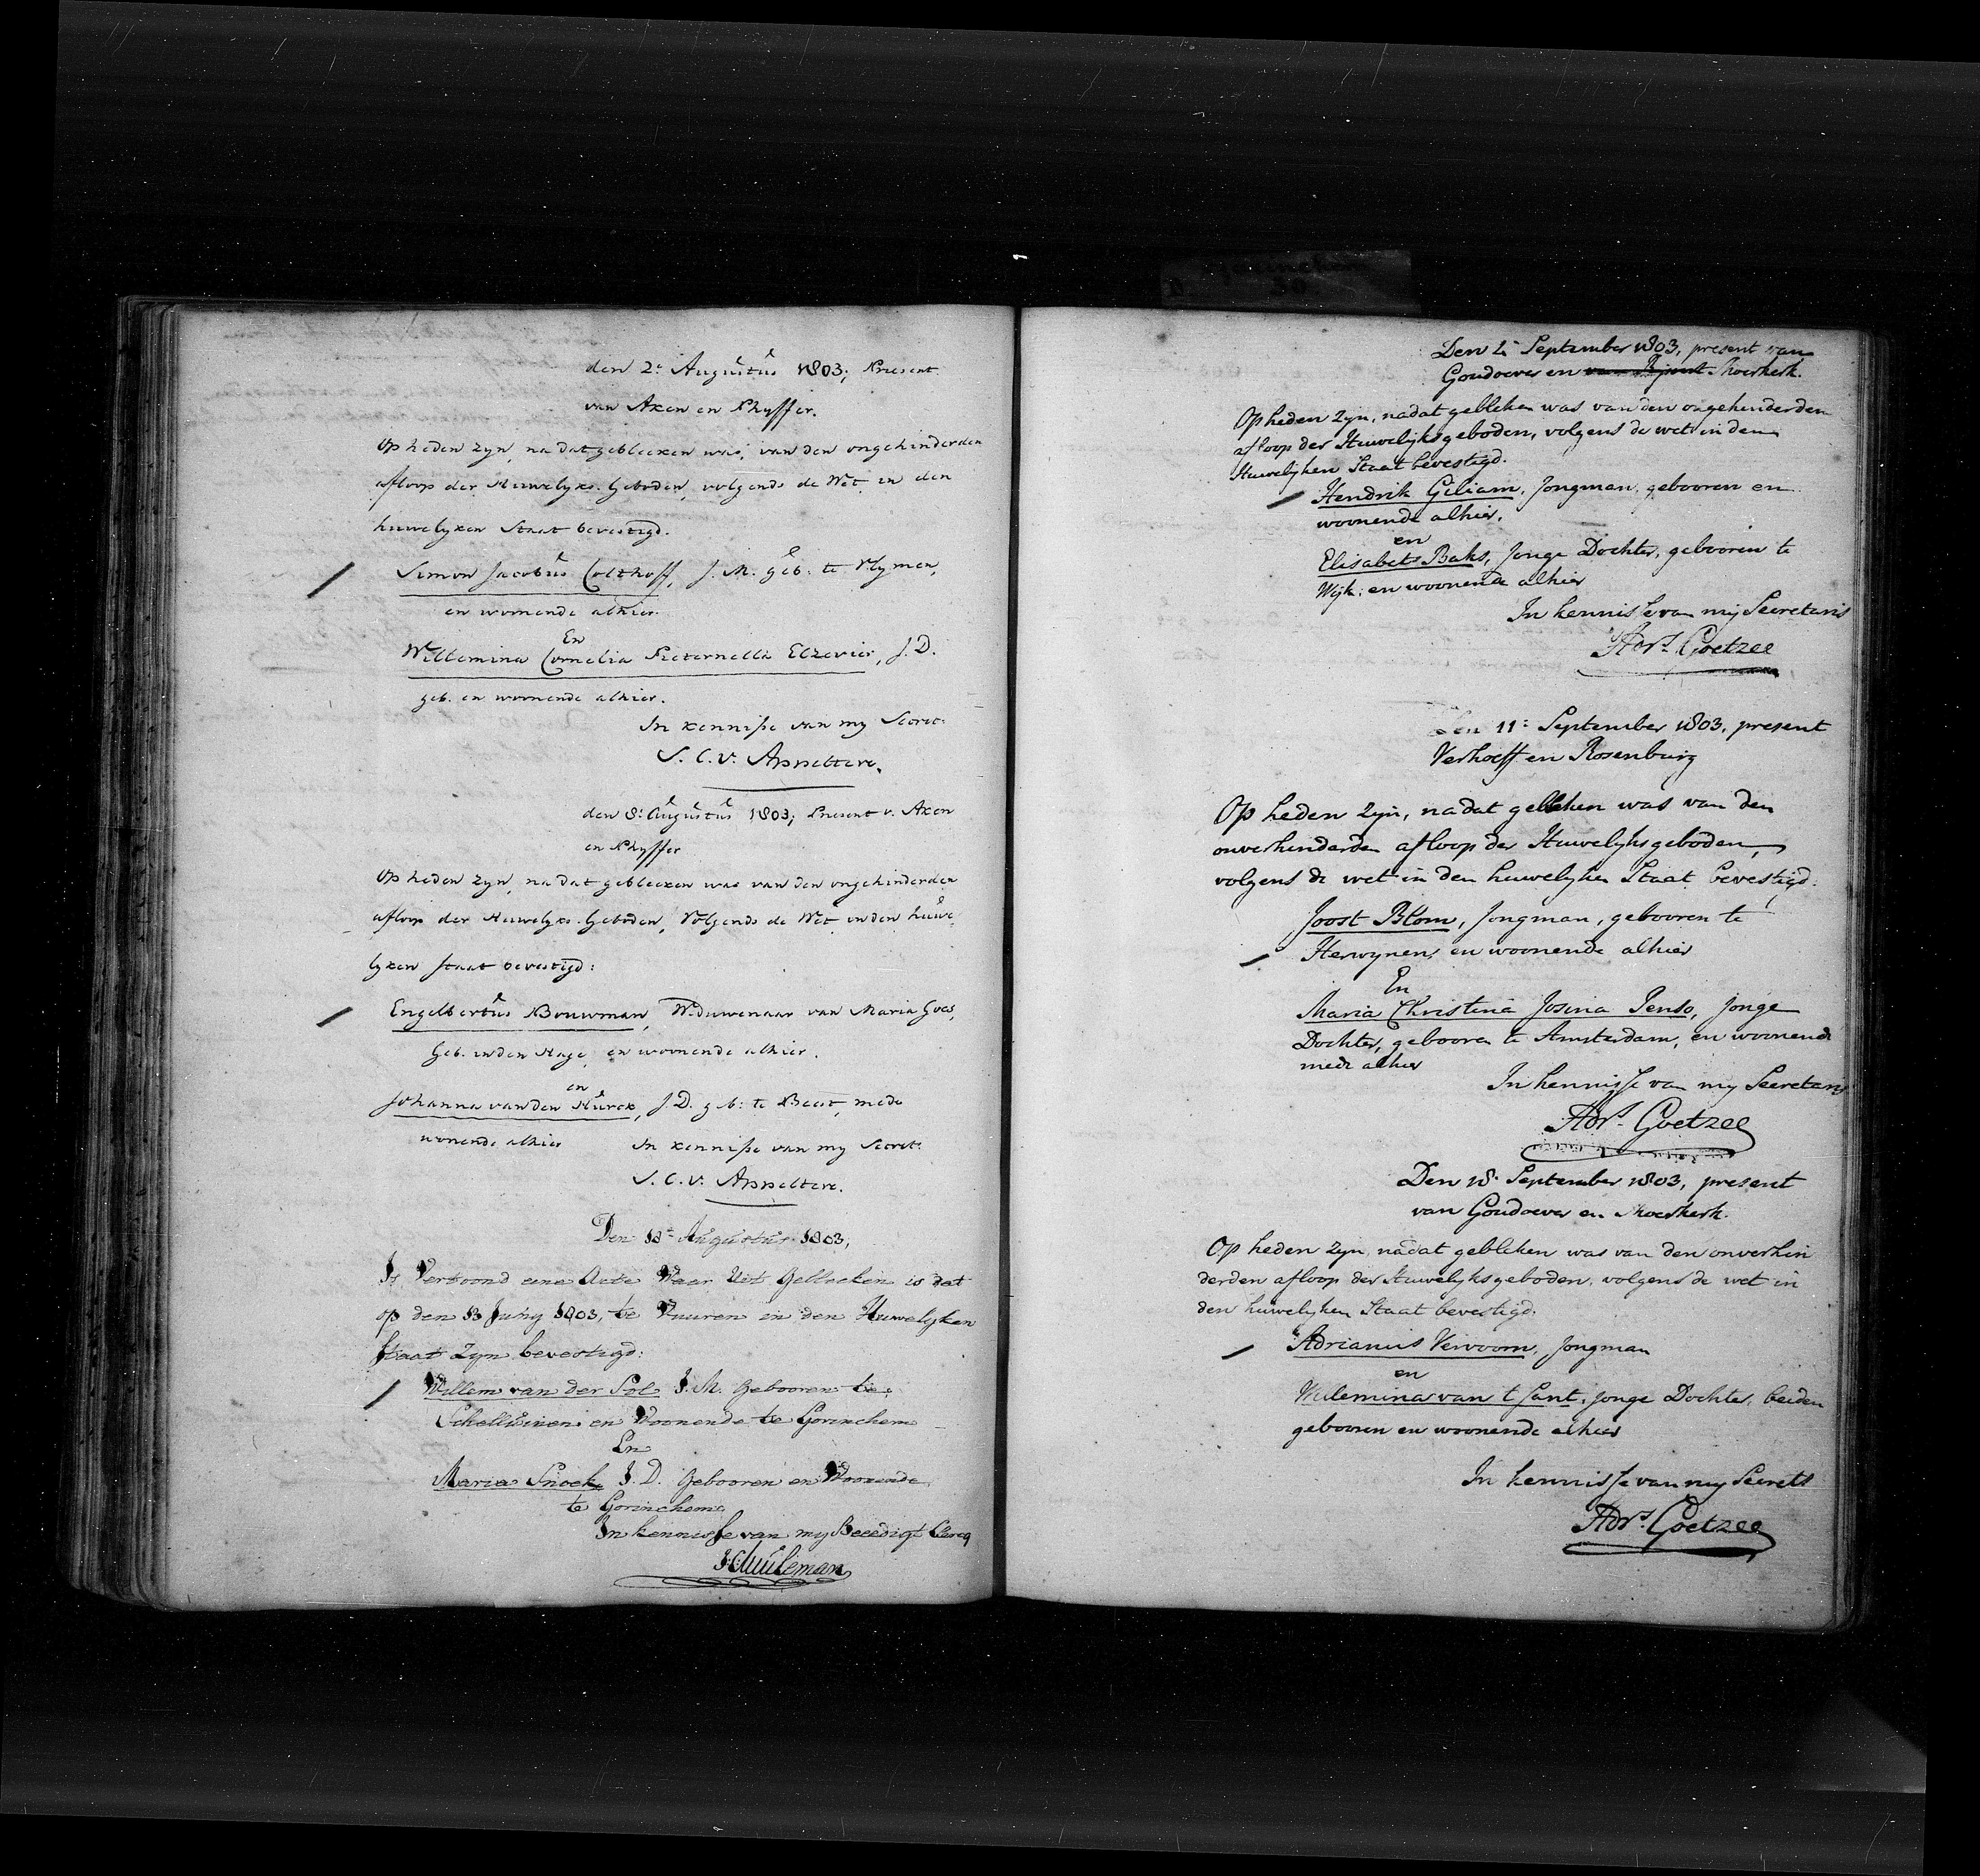 den 2e Augustus 1803; Present
van Axen en Phyffer.
Op heden Zyn, na dat gebleeken was, van den ongehinderden
afloop der Huwelyks Geboden, volgends de Wet, in den
huwelyken Staat bevestigd.
Simon Jacobus Colthoff, J. M. geb. te Vlymen,
en woonende alhier.
En
Willemina Cornelia Pieternella Elzevier, J. D.
geb. en woonende alhier.
In kennisse van my Secret:
S. C. V. Appeltere.
den 8: Augustus 1803; Present v. Axen
en Phyffer
Op heden Zyn, na dat gebleeken was van den ongehinderden
afloop der Huwelyks Geboden, Volgends de Wet, in den huwe
lyken staat bevestigd:
Engelbertus Bouwman, Weduwenaar van Maria Goes,
Geb. in den Hage, en woonende alhier.
en
Johanna van den Hurck, J. D. geb: te Beest, mede
wonende alhier
In kennisse van my Secret:
S. C. V. Appeltere.
Den 18e Augustus 1803,
Is Vertoond eene Acte Waar Uit Gebleeken is dat
op den 13 Juny 1803, te Vuuren in den Huwelyken
Staat Zyn bevestigd:
Willem van der Pol J. M. Gebooren te
Schelluinen en Woonende te Gorinchem
En
Maria Snoek J. D. Gebooren en Woonende
te Gorinchem
In kennisse van my Beëedigt Clercq
Den 2e September 1803, present van
Goudoever en van Moerkerk.
Op heden zyn, nadat gebleken was van den ongehinderden
afloop der Huwelyksgeboden, volgens de wet in den
Huwelyken Staat bevestigd.
Hendrik Giliam, Jongman, gebooren en
woonende alhier.
en
Elisabets Baks, Jonge Dochter, gebooren te
Wijk: en woonende alhier
In kennisse van mij Secretaris
Adrs. Goetzee
Den 11e September 1803, present
Verhoeff en Rosenburg
Op heden zyn, nadat gebleken was van den
onverhinderden afloop der Huwelyksgeboden,
volgens de wet in den huwelyken Staat bevestigd:
Joost Blom, Jongman, gebooren te
Herwynen, en woonende alhier
En
Maria Christina Josina Jenso, Jonge
Dochter, gebooren te Amsterdam, en woonende
mede alhier
In kennisse van my Secretaris
Adrs. Goetzee
Den 18e September 1803, present
van Goudoever en Moerkerk.
Op heden zyn, nadat gebleken was van den onverhin
derden afloop der Huwelyksgeboden, volgens de wet in
den huwelyken Staat bevestigd.
Adrianus Vervoorn, Jongman
en
Willemina van t Sant, Jonge Dochter, beiden
gebooren en woonende alhier
In kennisse van my Secrets
Adrs. Goetzee